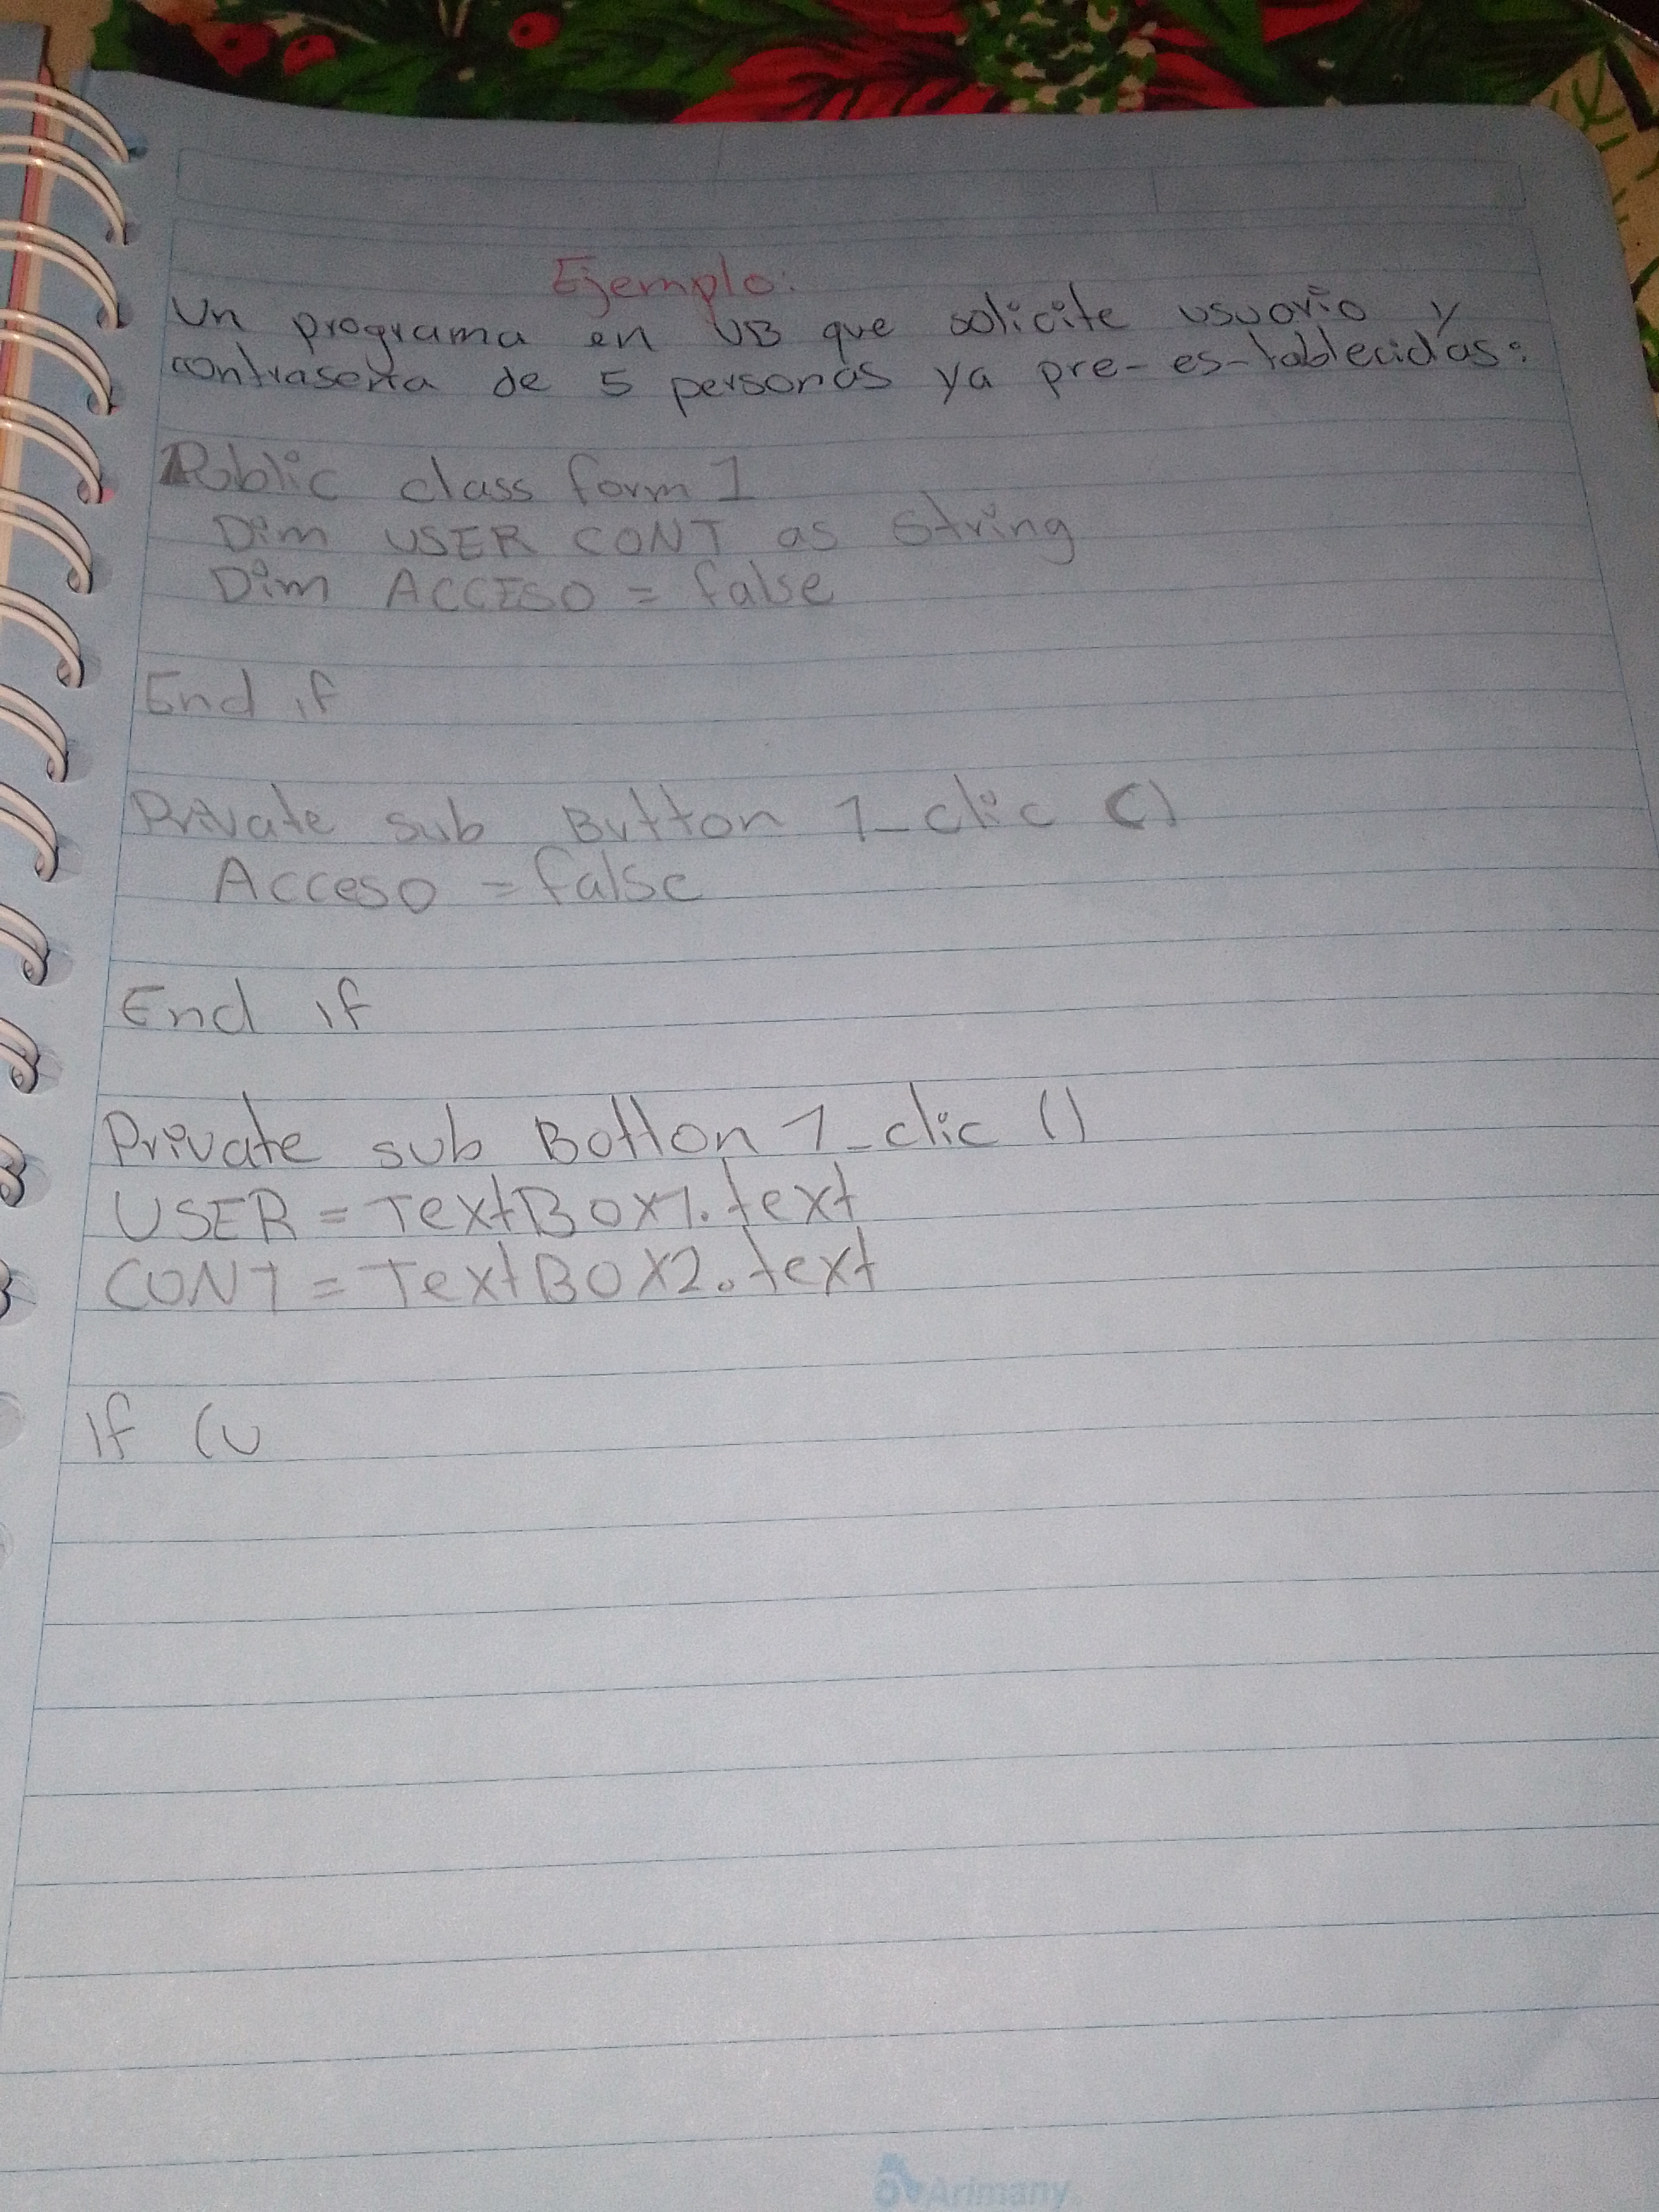 Ejemplo:
Un programa en VB que solicite usuario y
contraseña de 5 personas ya pre-es-tablecidas:
Public class form 1
Dim USER CONT as String
Dim ACCESO = false
End if
Private sub Button 1_clic ()
Acceso = false
End if
Private sub Botton 1_clic ()
USER = TextBox1.text
CONT = TextBOX2.text
If (U
Arimany